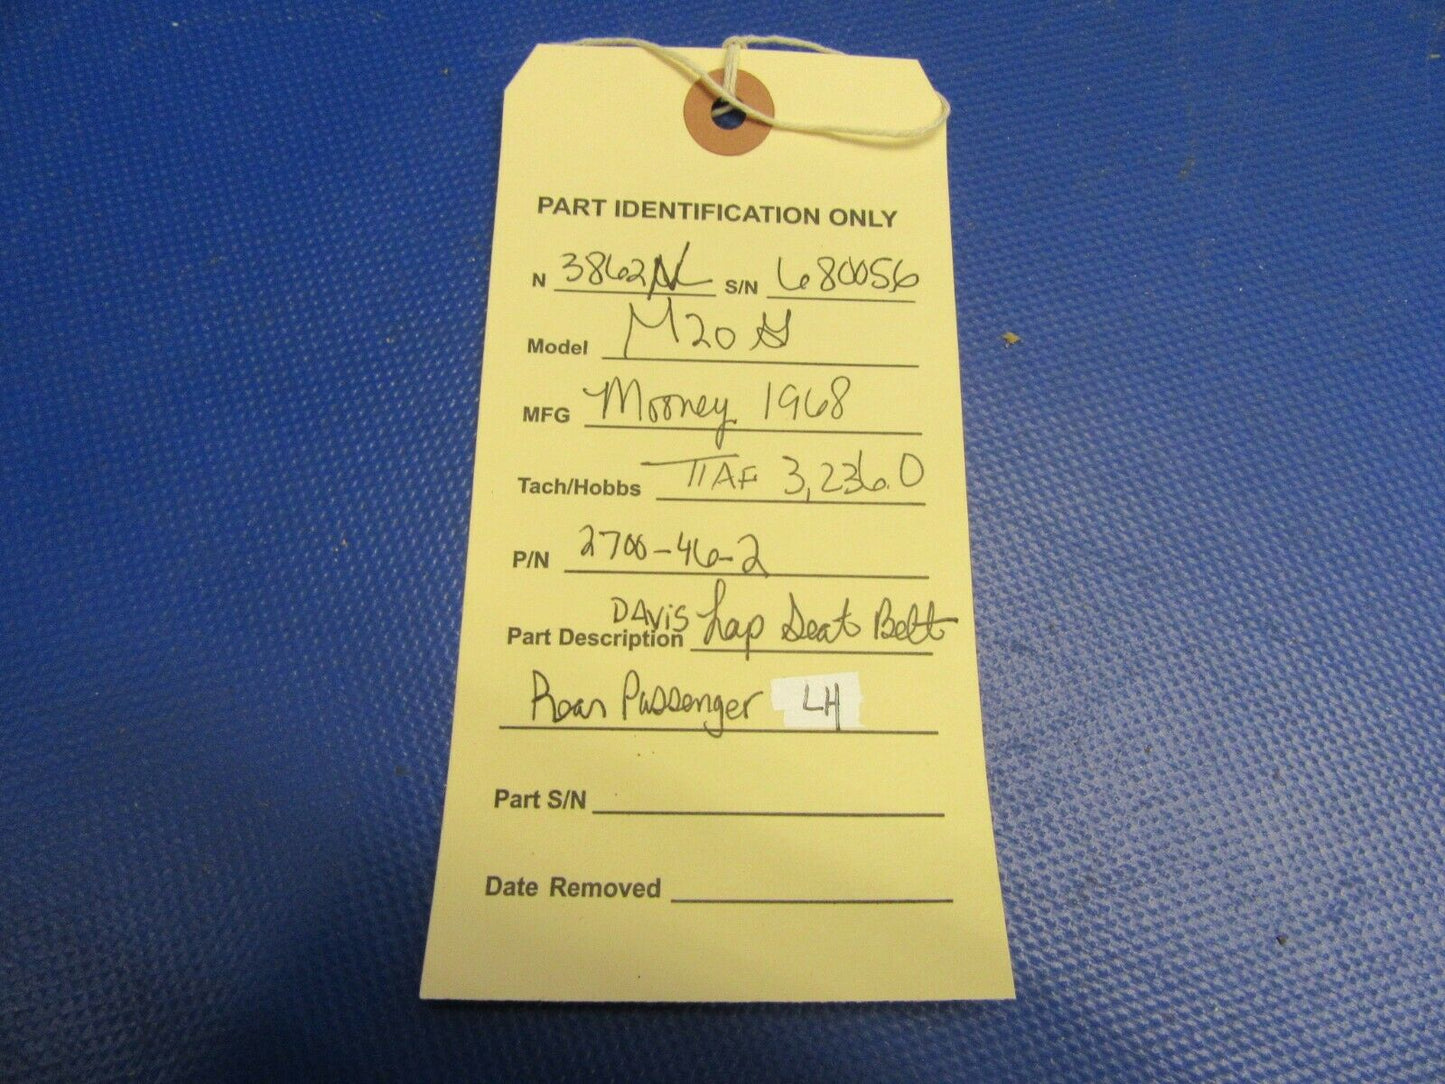 PART IDENTIFICATION ONLY
N 3862N S/N 680056
Model M20G
MFG Mooney 1968
Tach/Hobbs TTAF 3,236.0
P/N 2700-46-2
Part Description DAVIS Lap Seat Belt
Rear Passenger LH
Part S/N
Date Removed